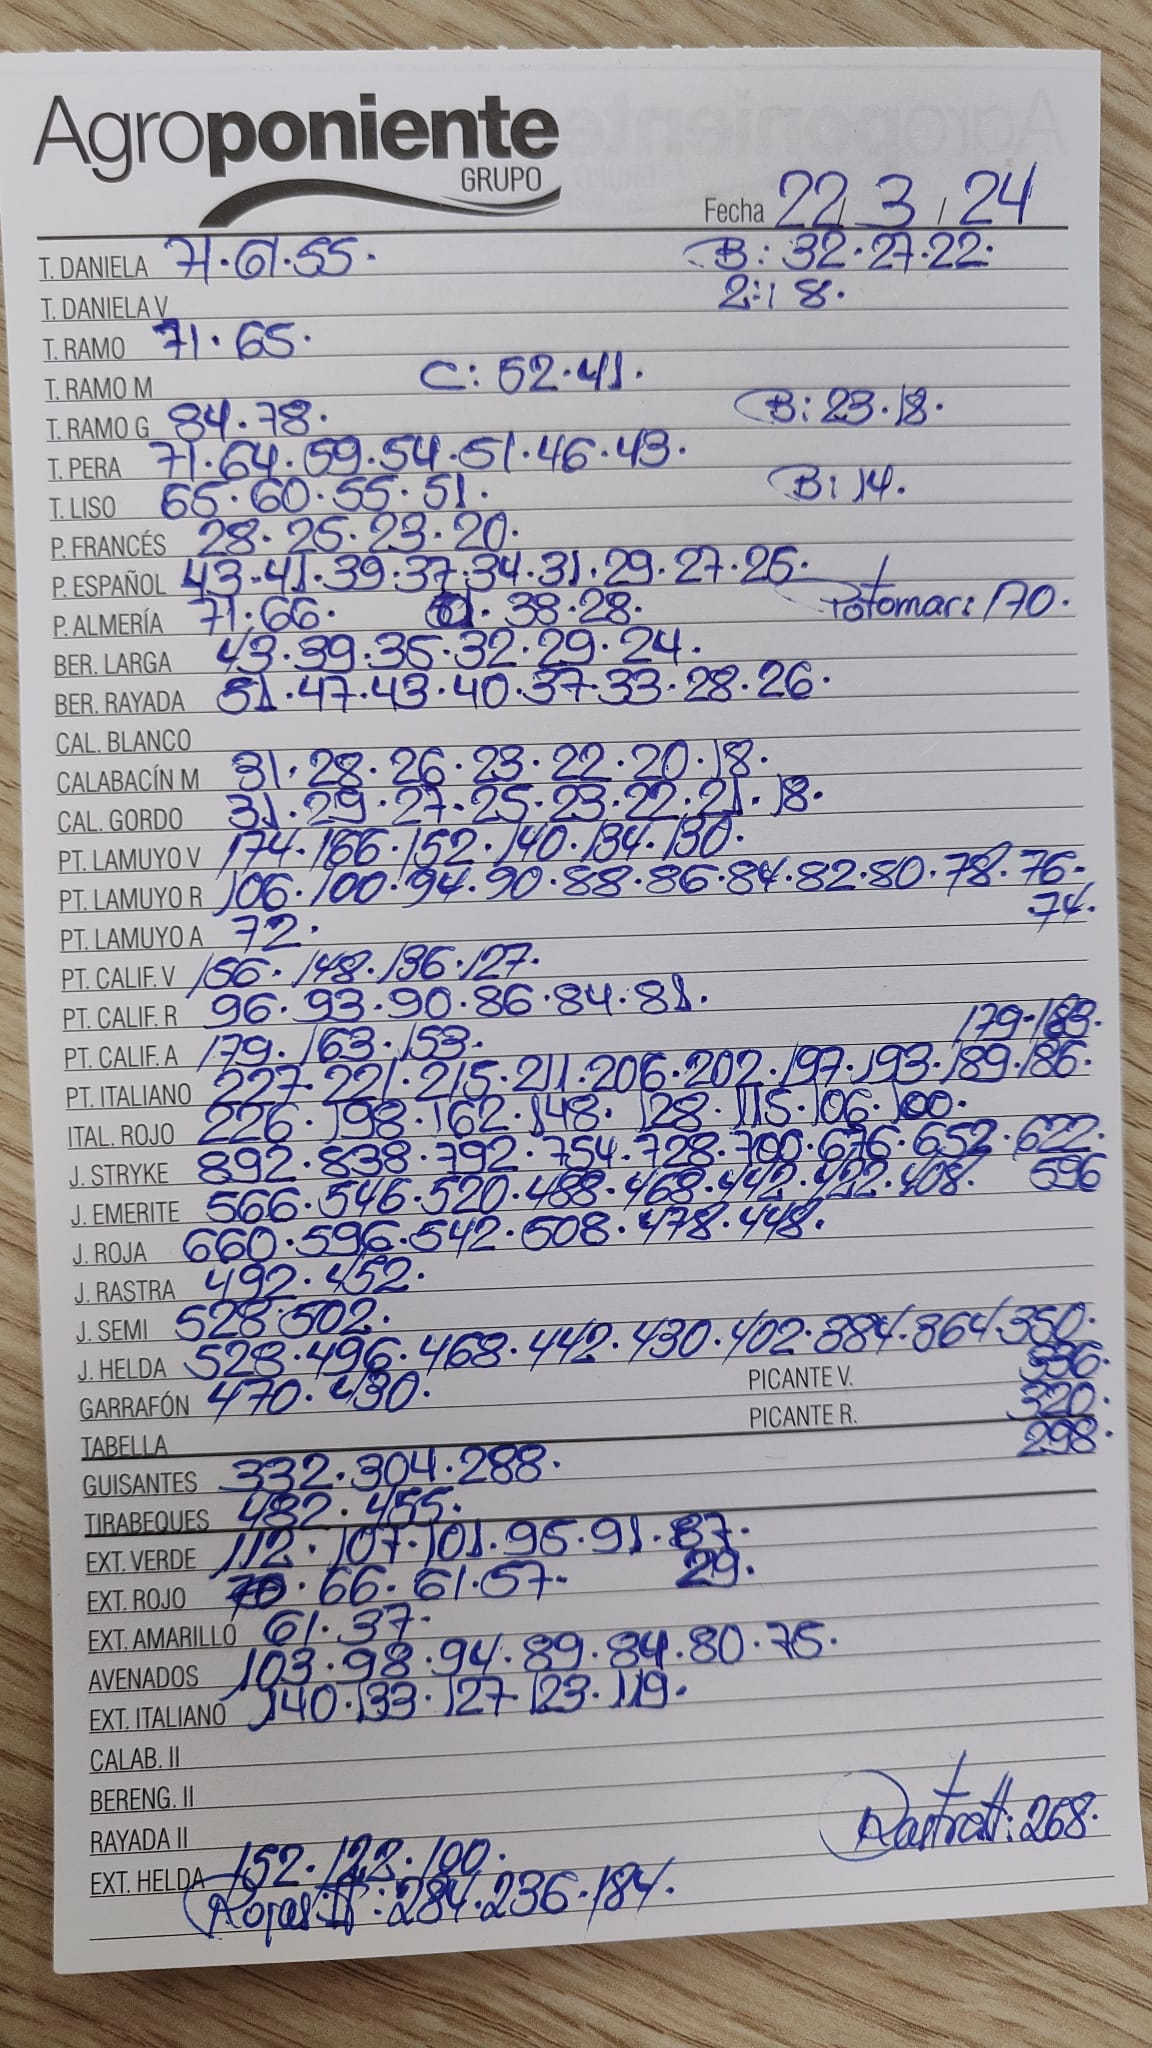 Agroponiente
GRUPO
Fecha 22/3/24
T. DANIELA 71·61·55· B: 32·27·22·
T. DANIELA V 2: 18·
T. RAMO 71·65·
T. RAMO M C: 52·41·
T. RAMO G 84·78· B: 23·18·
T. PERA 71·64·59·54·51·46·43·
T. LISO 65·60·55·51· B: 14·
P. FRANCÉS 28·25·23·20·
P. ESPAÑOL 43·41·39·37·34·31·29·27·25·
P. ALMERÍA 71·66· 61·38·28· Potomar: 170·
BER. LARGA 43·39·35·32·29·24·
BER. RAYADA 51·47·43·40·37·33·28·26·
CAL. BLANCO
CALABACÍN M 31·28·26·23·22·20·18·
CAL. GORDO 31·29·27·25·23·22·21·18·
PT. LAMUYO V 174·166·152·140·134·130·
PT. LAMUYO R 106·100·94·90·88·86·84·82·80·78·76·
·74·
PT. LAMUYO A 72·
PT. CALIF. V 156·148·136·127·
PT. CALIF. R 96·93·90·86·84·81·
PT. CALIF. A 179·163·153· 179·183·
PT. ITALIANO 227·221·215·211·206·202·197·193·189·186·
ITAL. ROJO 226·198·162·148·128·115·106·100·
J. STRYKE 892·838·792·754·728·700·676·652·622·
J. EMERITE 566·546·520·488·468·442·422·408· 596
J. ROJA 660·596·542·508·478·448·
J. RASTRA 492·452·
J. SEMI 528·502·
J. HELDA 528·496·468·442·430·402·384·364·350·
GARRAFÓN 470·430· PICANTE V. 336·
TABELLA PICANTE R. 320·
GUISANTES 332·304·288· 298·
TIRABEQUES 482·455·
EXT. VERDE 112·107·101·95·91·87·
EXT. ROJO 70·66·61·57· 29·
EXT. AMARILLO 61·37·
AVENADOS 103·98·94·89·84·80·75·
EXT. ITALIANO 140·133·127·123·119·
CALAB. II
BERENG. II
RAYADA II Rastra II: 268·
EXT. HELDA 152·122·100·
Rojas II: 284·236·184·